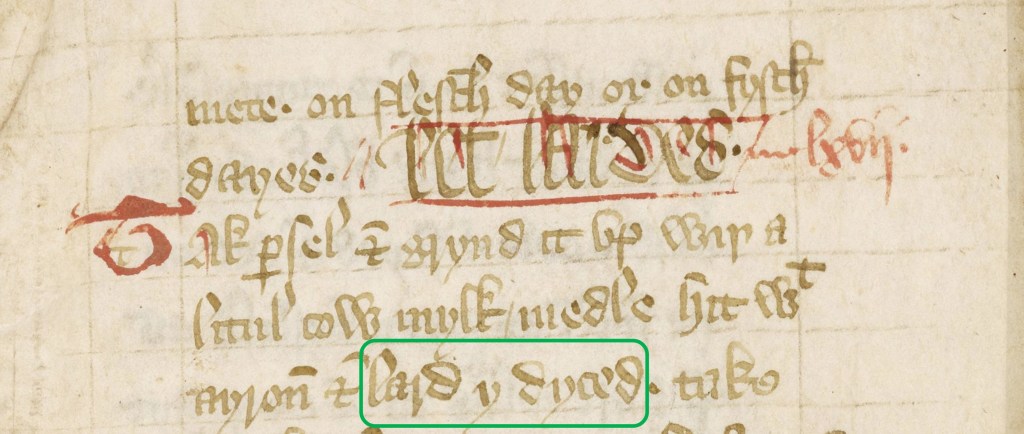 mete. on flesch day or on fysch
dayes. let lardes. lxvij.
Tak ꝑsel & grynd it vp wiþ a
litul cow mylk / medle hit wᵗ
ayron̄ & lard y dyced. take